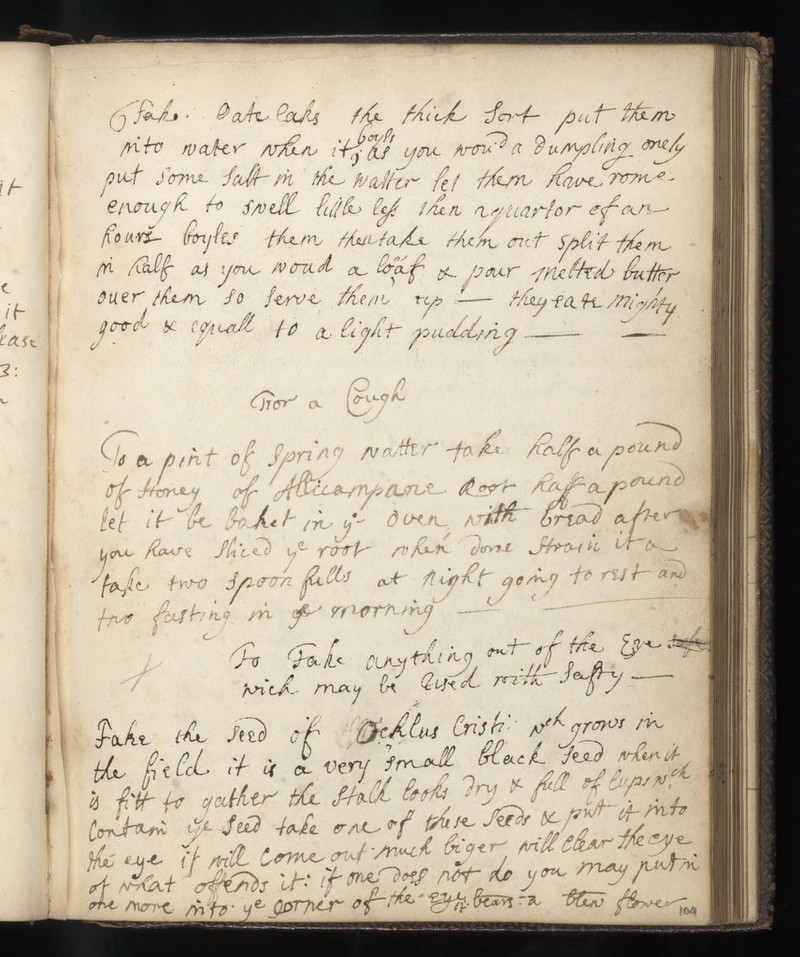 Take Oate Caks the thick Sort put them
into water when it boyls as you woud a Dumpling onely
put Some Salt in the Watter let them have rome
enough to Swell little less then a quartor of an
hours boyles them then take them out Split them
in halfe as you woud a loaf & pour melted butter
ouer them So Serve them up — they eate mighty
good & equall to a light pudding —
For a Cough
To a pint of Spring watter take halfe a pound
of Honey of Allicampane Root halfe a pound
let it be baket in ye Oven with bread after
you have Sliced ye root when done Strain it
take two Spoon fulls at night going to rest and
two fasting in ye morning —
To Take anything out of the Eye
wich may be Used with Safty —
Take the Seed of Ocklus Cristi wch grows in
the field it is a very Small black Seed when it
is fitt to gather the Stalk looks Dry & full of Cups wch
Contain ye Seed take one of these Seeds & put it into
the eye it will Come out much biger will Clear the eye
of what offends it: if one does not do you may put in
one more into ye Corner of the eye it bears a blew flower
104
it
e
it
3: